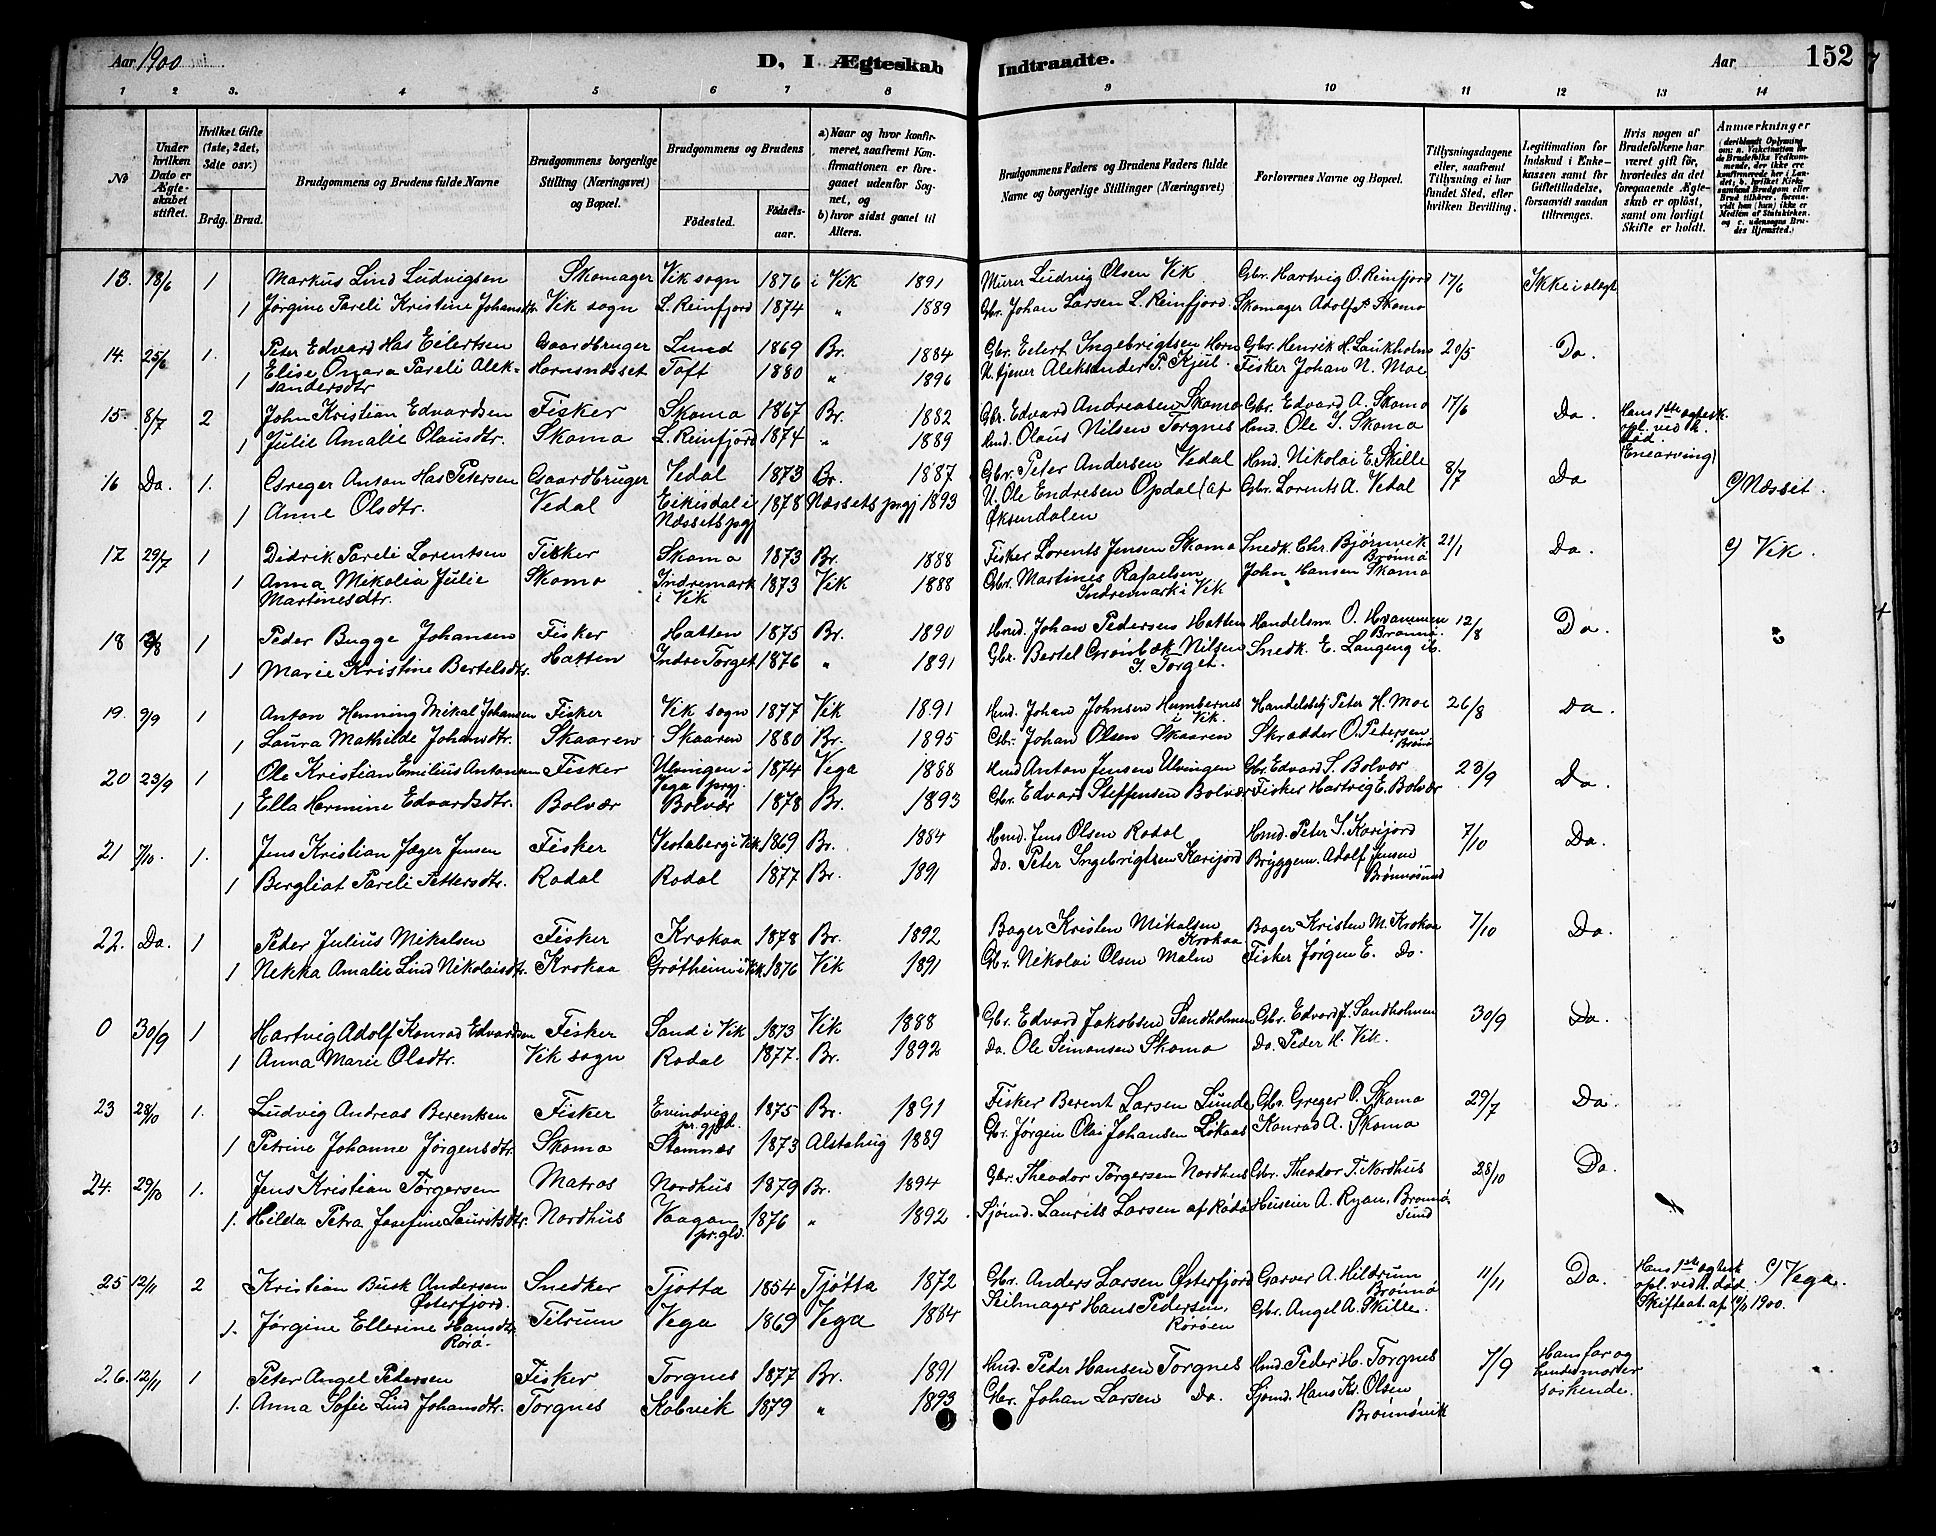 Aar 1900
D, I Ægteskab Indtraadte.
Aar
152
1 2 3. 4 5 6 7 8 9 10 11 12 13 14
No
Under hvilken Dato er Ægteskabet stiftet.
Hvilket Gifte (1ste, 2det, 3die osv.)
Brdg. Brud.
Brudgommens og Brudens fulde Navne
Brudgommens borgerlige Stilling (Næringsvei) og Bopæl.
Brudgommens og Brudens
Fødested. Fødselsaar.
a) Naar og hvor konfirmeret, saafremt Konfirmationen er foregaaet udenfor Sognet, og
b) hvor sidst gaaet til Alters.
Brudgommens Faders og Brudens Faders fulde Navne og borgerlige Stillinger (Næringsvei)
Forlovernes Navne og Bopæl.
Tillysningsdagene eller, saafremt Tillysning ei har fundet Sted, efter hvilken Bevilling.
Legitimation for Indskud i Enkekassen samt for Giftetilladelse, forsaavidt saadan tiltrænges.
Hvis nogen af Brudefolkene har været gift før, hvorledes da det foregaaende Ægteskab er opløst, samt om lovligt Skifte er holdt.
Anmærkninger
(deriblandt Oplysning om: a. Vakcination for de Brudefolks Vedkommende, der ikke ere konfirmerede her i Landet; b. hvilket Kirkesamfund Brudgom eller Brud tilhører, forsaavidt han (hun) ikke er Medlem af Statskirken. og c. udensogns Brudes Hjemsted.)
13. 18/6 1 Markus Lind Ludvigsen Skomager Vik sogn 1876 i Vik 1891 Murer Ludvig Olsen Vik Gbr. Hartvig O. Reinfjord 17/6 Ikke i slægt
1 Jørgine Pareli Kristine Johansdtr. Vik sogn L. Reinfjord 1874 " 1889 Gbr. Johan Larsen L. Reinfjord. Skomager Adolf P. Skomo
14. 25/6 1. Peter Edvard Has Eilertsen Gaardbruger Lund 1869 Br. 1884 Gbr. Eilert Ingebrigtsen Horn Gbr. Henrik H. Laukholm 20/5 Do.
1 Elise Omara Pareli Aleksandersdtr Hornsnæsset Toft 1880 " 1896 U. tjener Aleksander P. Kjul. Fisker Johan N. Moe
15. 8/7 2 John Kristian Edvardsen Fisker Skomo 1867 Br. 1882 Gbr. Edvard Andreasen Skomo Gbr. Edvard A. Skomo 17/6 Do. Hans 1ste ægtesk. opl. ved h. død. (Enearving)
1 Julie Amalie Olausdtr. Skomo L. Reinfjord 1874 " 1889 Hmd. Olaus Nilsen Torgnes Hmd. Ole J. Skomo
16 Do. 1. Greger Anton Has Petersen Gaardbruger Vedal 1873 Br. 1887 Gbr. Peter Andersen Vedal Hmd. Nikolai E. Skille 8/7 Do
1 Anne Olsdtr. Vedal Eikisdal i Næssets prgj 1878 Næssets prgj 1893 U. Ole Endresen Opdal (af Øksendalen Gbr. Lorents A. Vedal c) Næsset.
17 29/7 1 Didrik Pareli Lorentsen Fisker Skomo 1873 Br. 1888 Fisker Lorents Jensen Skomo Snedk. Chr. Bjørnvik Brønnø 21/1 Do. c) Vik.
1 Anna Mikolea Julie Martinesdtr. Skomo Indremark i Vik 1873 Vik 1888 Gbr. Martines Rafaelsen Indremark i Vik John Hansen Skomo
18 1 Peder Bugge Johansen Fisker Hatten 1875 Br. 1890 Hmd. Johan Pedersen Hatten Handelsm O. Brønnø. 12/8 Do.
1 Marie Kristine Bertelsdtr. Hatten Indre Torget 1876 " 1891 Gbr. Bertel Grønbæk Nilsen I. Torget. Snedk. E. Langeng ib.
19. 9/9 1 Anton Henning Mikal Johansen Fisker Vik sogn 1877 Vik 1891 Hmd. Johan Johnsen Humbernes i Vik. Handelsbtj Peter H. Moe 26/8 Do.
1 Laura Mathilde Johansdtr. Skaaren Skaaren 1880 Br. 1895 Gbr. Johan Olsen Skaaren Skrædder O. Petersen Brønø
20 23/9 1 Ole Kristian Emilius Antonsen Fisker Ulvingen i Vega prgj. 1874 Vega 1888 Hmd Anton Jensen Ulvingen Gbr. Edvard S. Bolvær 23/9 Do.
1 Ella Hermine Edvardsdtr. Bolvær Bolvær 1878 Br. 1893 Gbr. Edvard Steffensen Bolvær Fisker Hartvig E. Bolvær
21 7/10. 1. Jens Kristian Jæger Jensen Fisker Vestaberg i Vik 1869 Br. 1884 Hmd. Jens Olsen Rodal Hmd. Peter I. Karijord 7/10 Do.
1 Bergliot Pareli Pettersdtr. Rodal Rodal 1877 Br. 1891 Do. Peter Ingebrigtsen Karijord Bryggem. Adolf Jensen Brønnøsund
22. Do. 1 Peder Julius Mikalsen Fisker Krokaa 1878 Br. 1892 Bager Kristen Mikalsen Krokaa Bager Kristen M. Krokaa 7/10 Do.
1 Nekka Amalie Lind Nikolaisdtr. Krokaa Grøtheim i Vik 1876 Vik 1891 Gbr. Nikolai Olsen Malm Fisker Jørgen E. Do.
0 30/9 1 Hartvig Adolf Konrad Edvardsen Fisker Sand i Vik 1873 Vik 1888 Gbr. Edvard Jakobsen Sandholmen Gbr. Edvard J. Sandholmen 30/9 Do.
1 Anna Marie Olsdtr. Vik sogn Rodal 1877. Br. 1892 Do. Ole Simonsen Skomo Do. Peder H. Vik.
23 28/10 1. Ludvig Andreas Berentsen Fisker Evindvig pr. gjæld. 1875 Br. 1891 Fisker Berent Larsen Lunde Gbr. Greger P. Skomo 29/7 Do.
1 Petrine Johanne Jørgensdtr. Skomo Stamnæs 1873 Alstahug 1889 Gbr. Jørgen Olai Johansen Løkaas Konrad A. Skomo
24. 29/10 1. Jens Kristian Torgersen Matros Nordhus 1879 Br. 1894 Gbr. Theodor Torgersen Nordhus Gbr. Theodor T. Nordhus 28/10 Do.
1. Hilda Petra Josefine Lauritsdtr. Nordhus Vaagan pr.gld. 1876 " 1892 Sjømd. Laurits Larsen af Rødø Huseier A. Ryan, Brønnøsund
25 12/11 2 Kristian Busk Andersen Østerfjord. Snedker Tjøtta 1854 Tjøtta 1872 Gbr. Anders Larsen Østerfjord Garver A. Hildrum Brønnø 11/11 Do. Hans 1ste ægtesk opl. ved h. død. Skifteat. af 10/11 1900. c) Vega.
1. Jørgine Ellerine Hansdtr. Rørø. Tilrum Vega 1869 Vega 1884 Seilmager Hans Pedersen, Rørøen Gbr. Angel A. Skille.
26. 12/11 1 Peter Angel Pedersen Fisker Torgnes 1877 Br. 1891 Hmd. Peder Hansen Torgnes Hmd. Peder H. Torgnes 7/9 Hans far og hendes morter søskende.
1. Anna Sofie Lind Johansdtr. Torgnes Kobvik 1879 " 1893 Gbr. Johan Larsen Do. Sjømd. Hans Kr. Olsen, Brønnøvik